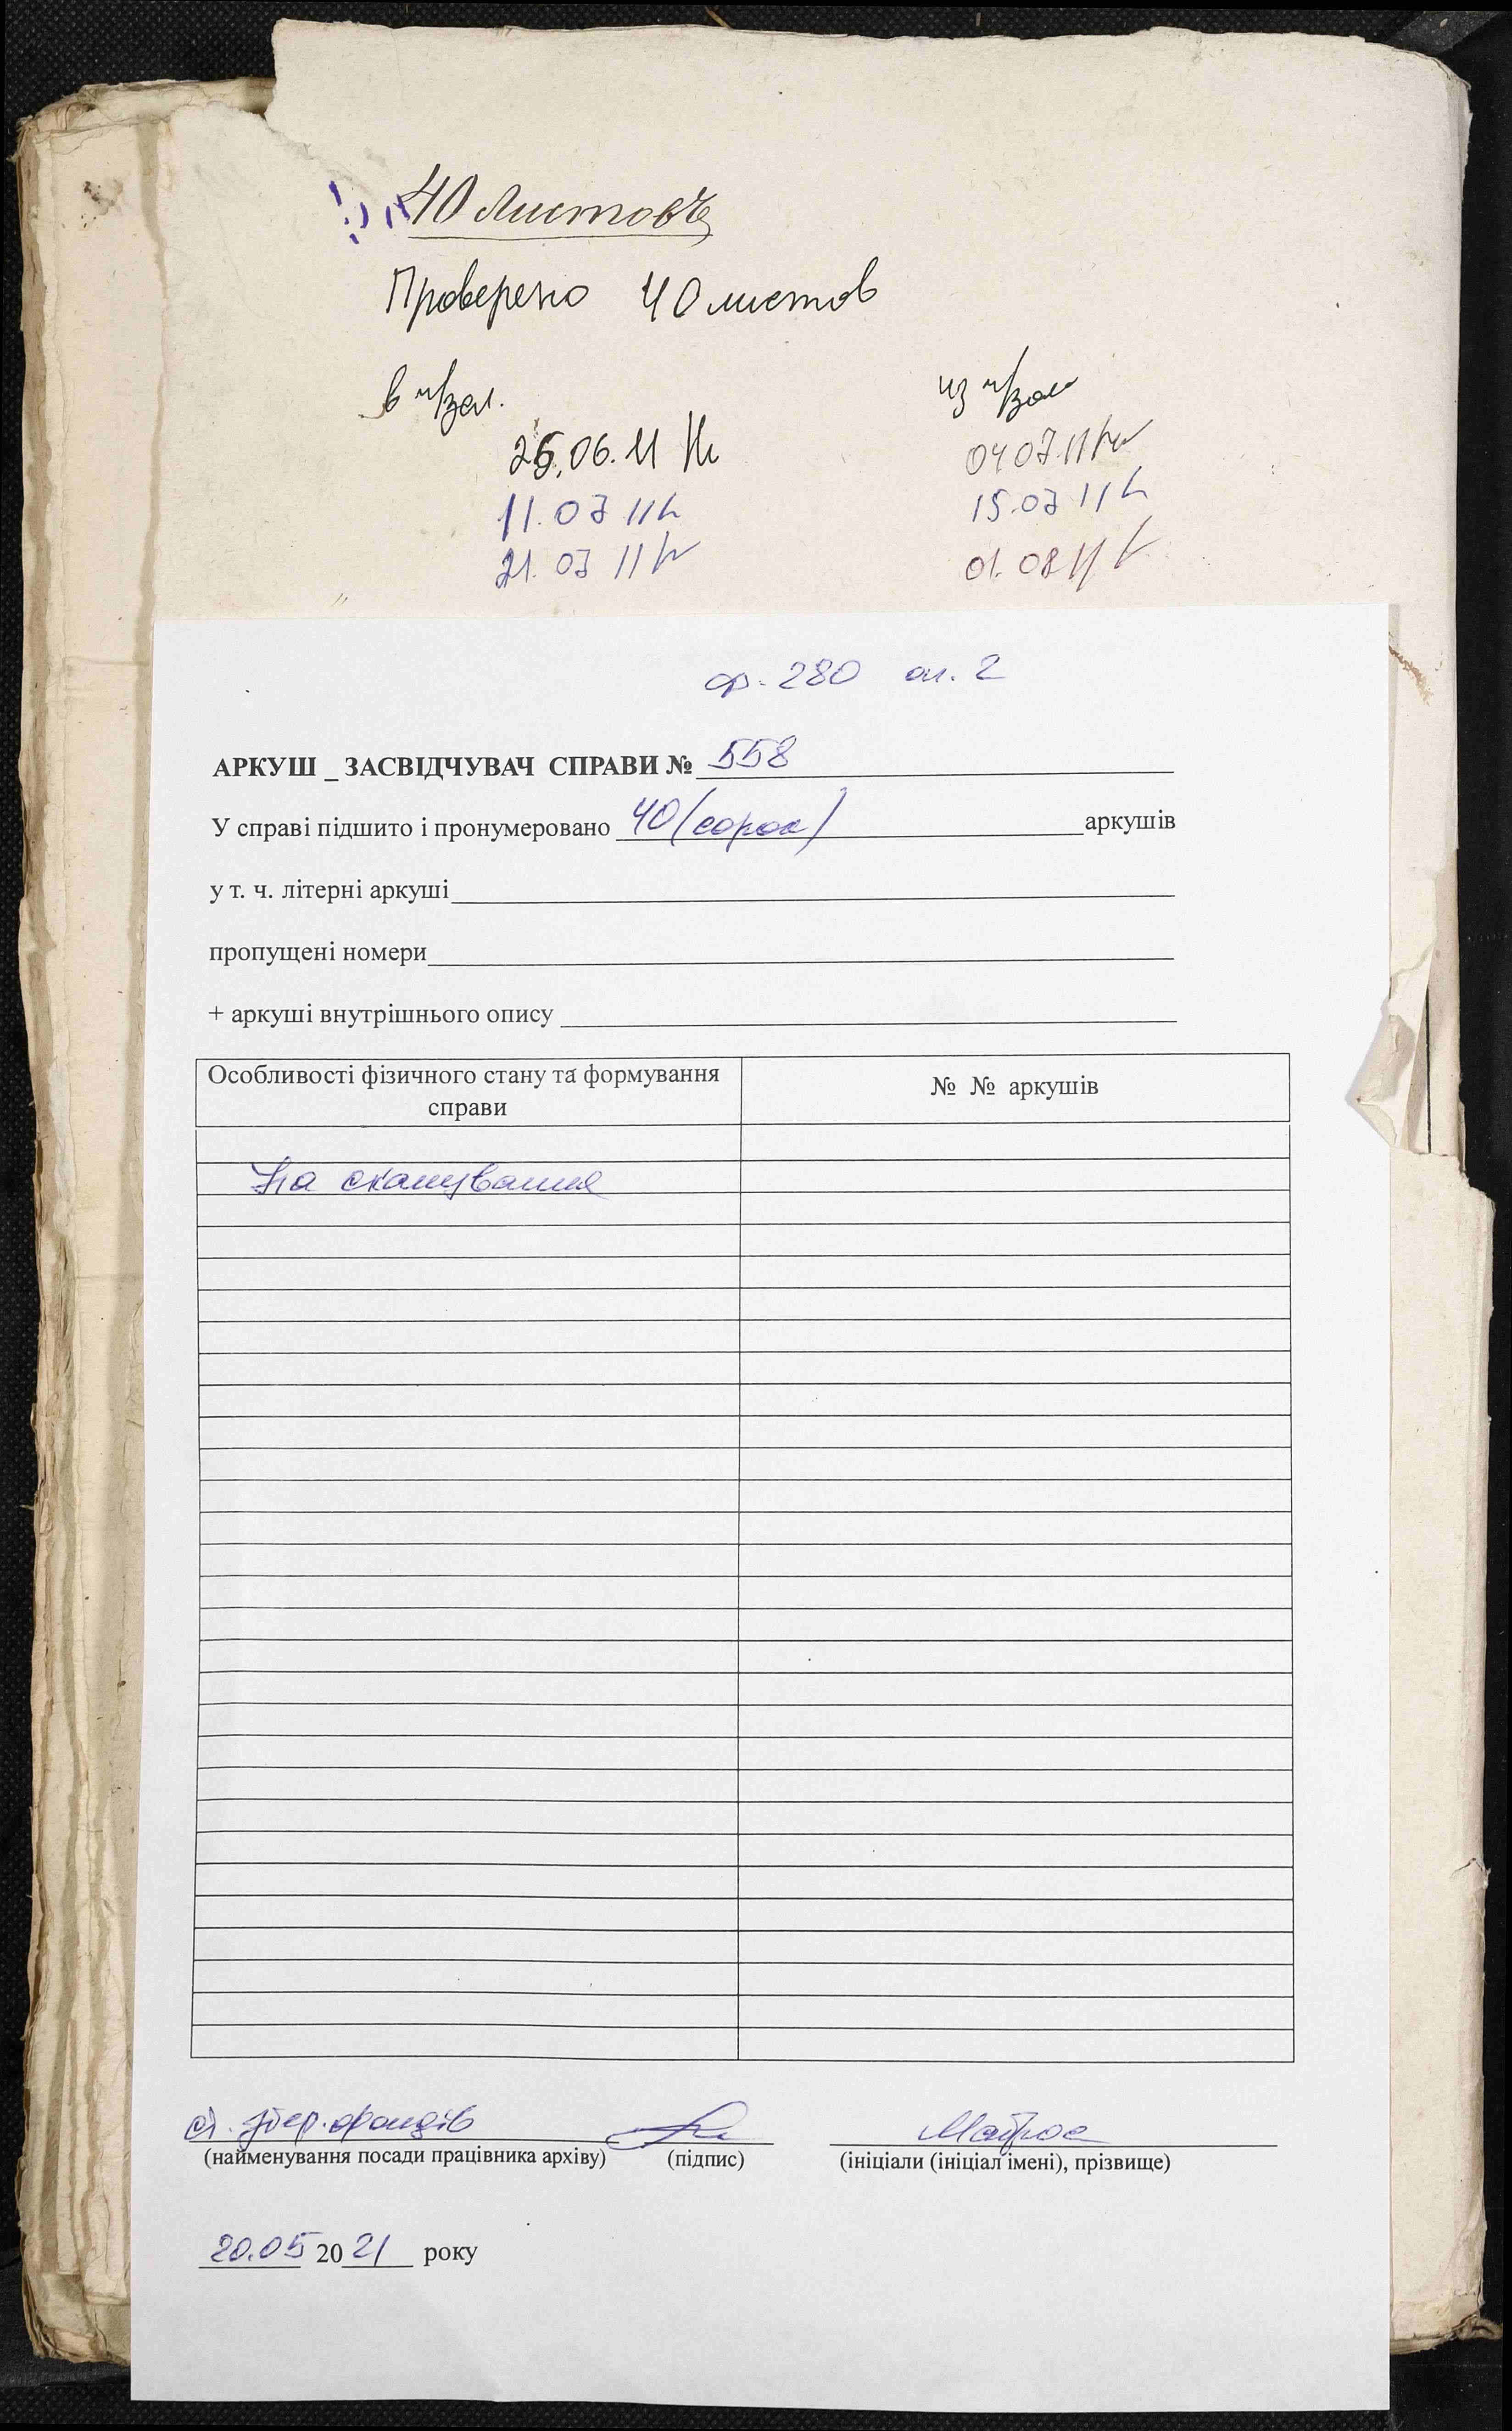 40 листовъ
Проверено 40 листов
в ч/зал. из ч/зала
25.06.11 04 07.11
11.07 11 15.07 11
21.07 11 01.08 11
ф. 280 оп. 2
АРКУШ _ ЗАСВІДЧУВАЧ СПРАВИ № 558
У справі підшито і пронумеровано 40 (сорок) аркушів
у т. ч. літерні аркуші
пропущені номери
+ аркуші внутрішнього опису
Особливості фізичного стану та формування № № аркушів
справи
На сканування
ст. збер. фондів
(найменування посади працівника архіву) (підпис) (ініціали (ініціал імені), прізвище)
20.05 2021 року